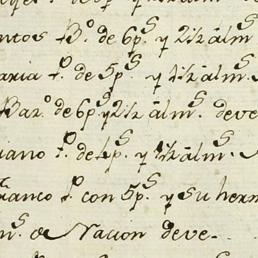 ntos Bº. de 6pˢ. y 2½ almˢ
aria Pº. de 5pˢ. y 1½ almˢ.
Bazº. de 6pˢ y 2½ almˢ. deve
iano Pº. de 4pˢ. y 1½ almˢ.
anco Pº. con 5pˢ. y su herm
mˢ. de Nacion deve..